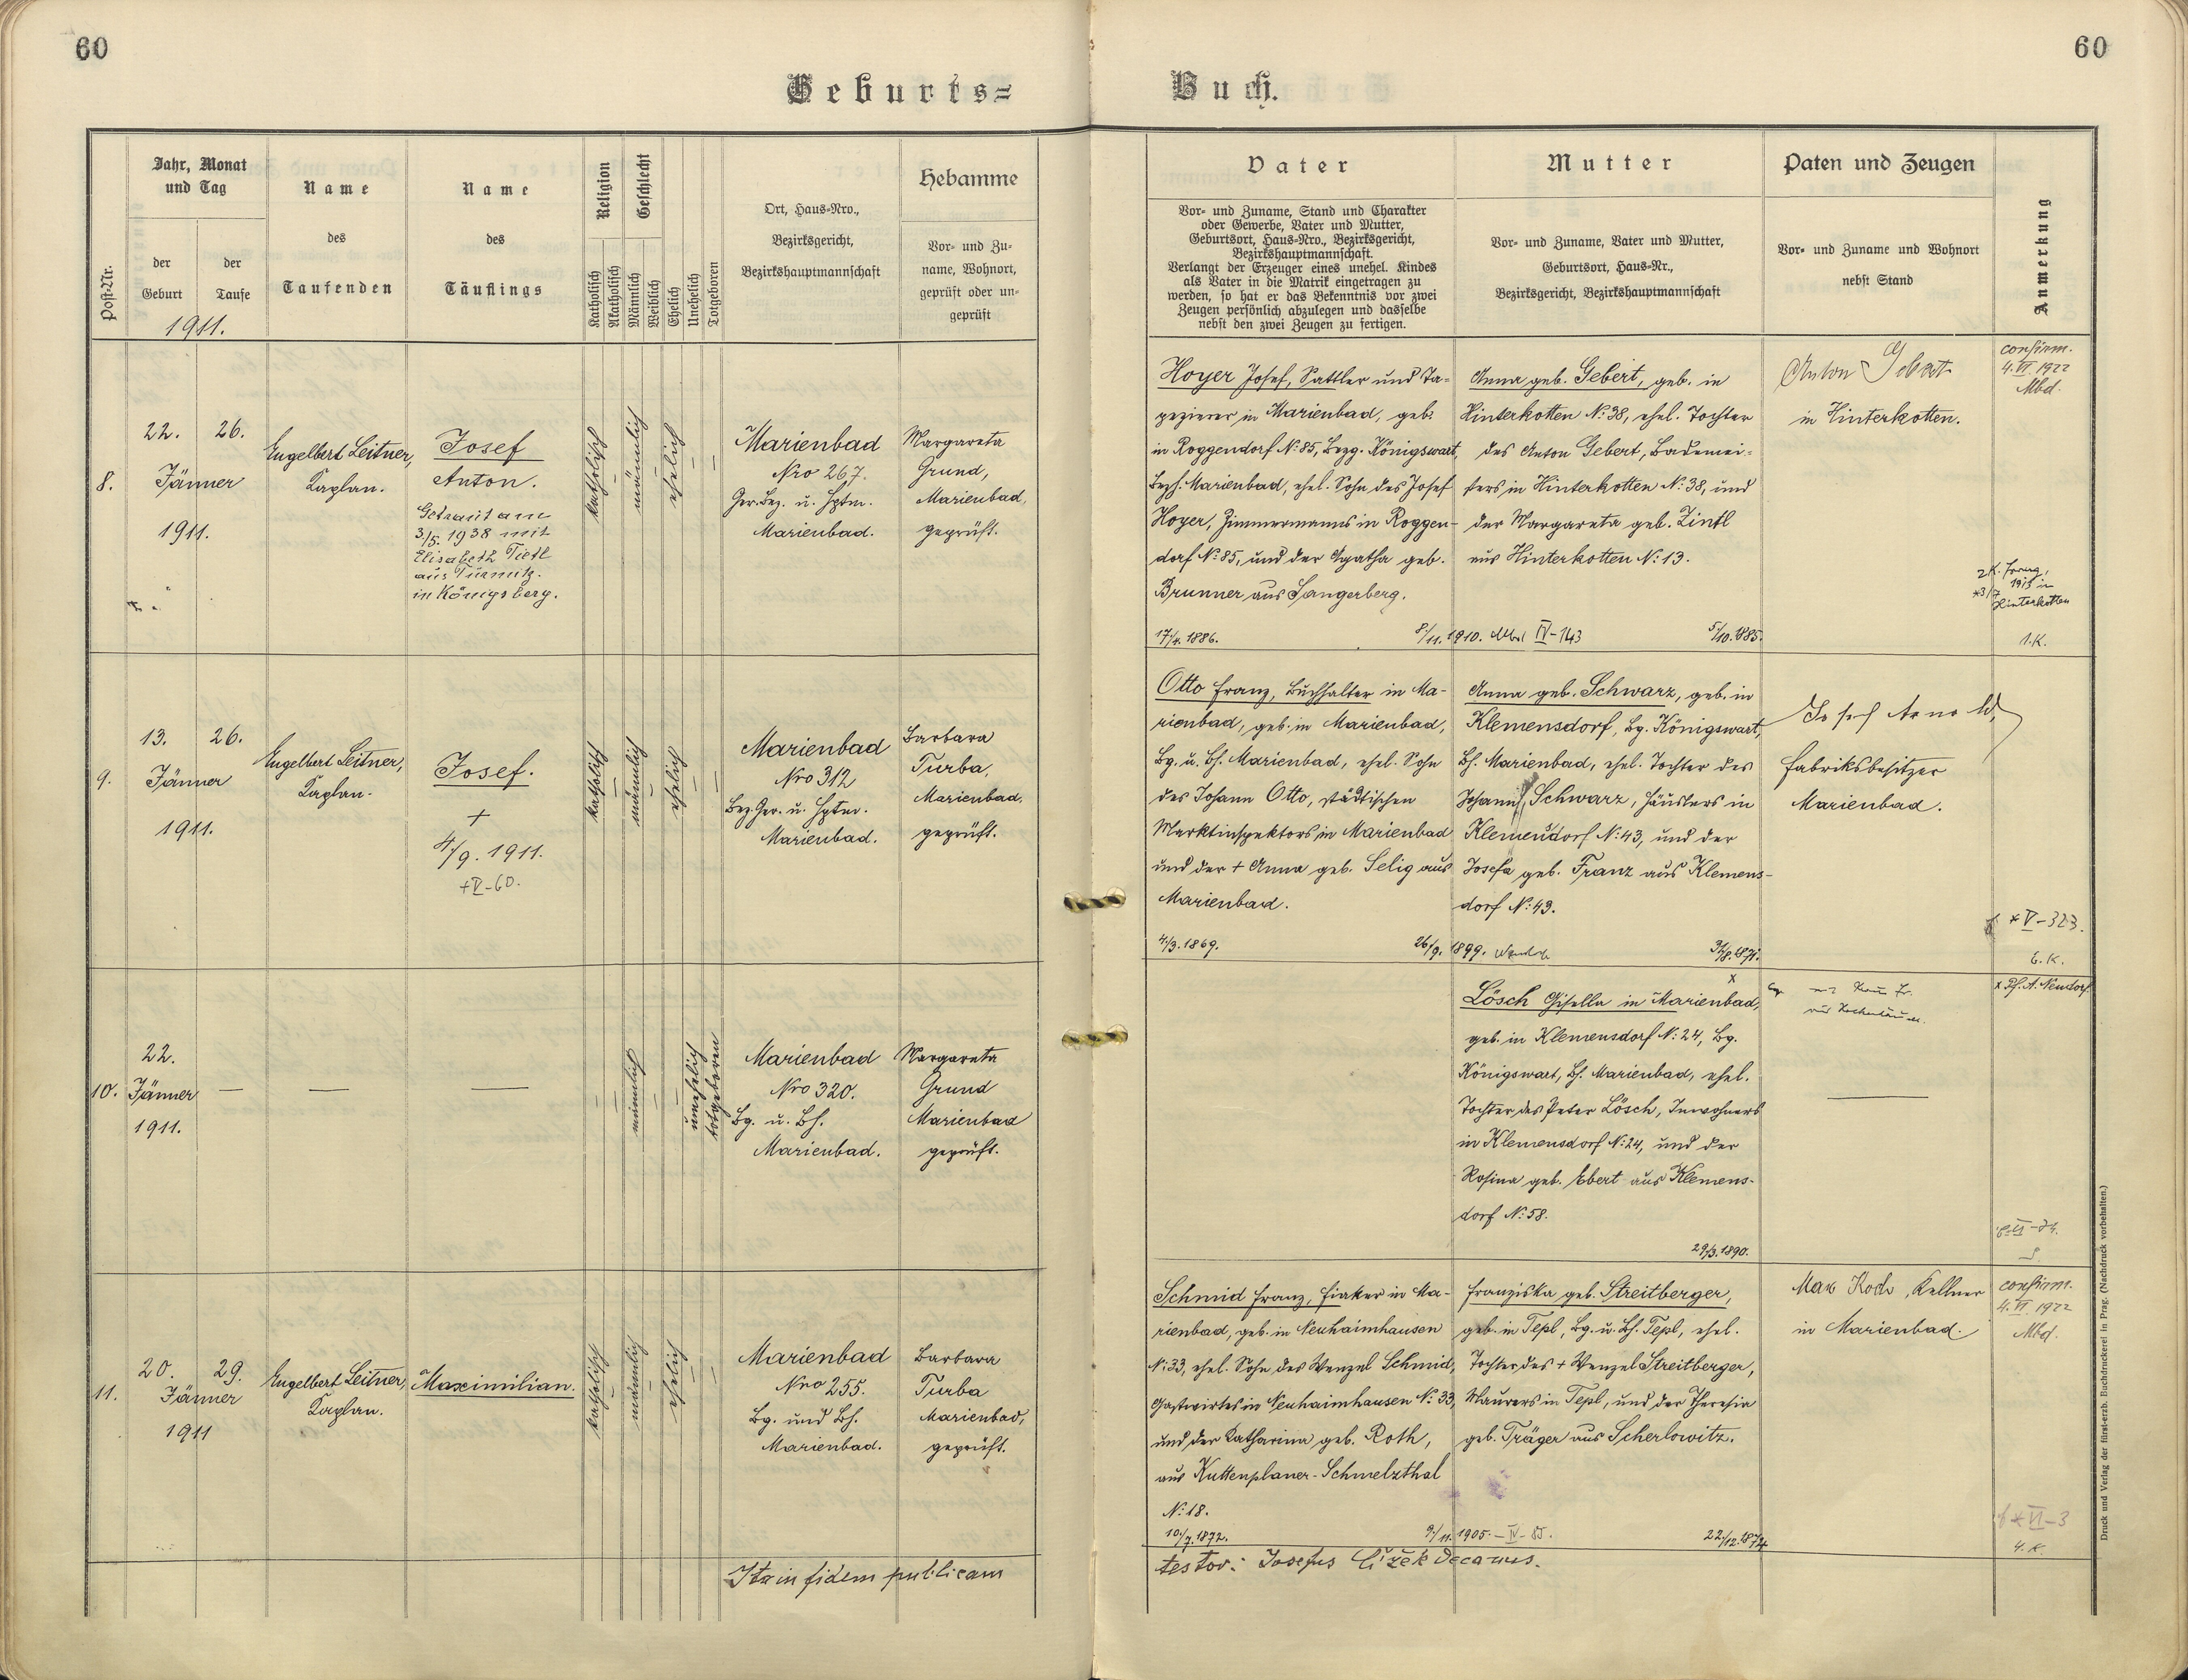 60
60
Geburts=
Buch.
Post-Nr.
Jahr, Monat
und Tag
der
Geburt
der
Taufe
1911.
Name
des
Taufenden
Name
des
Täuflings
Religion
Katholisch
Akatholisch
Geschlecht
Männlich
Weiblich
Ehelich
Unehelich
Totgeboren
Ort, Haus-Nro.,
Bezirksgericht,
Bezirkshauptmannschaft
Hebamme
Vor- und Zu-
name, Wohnort,
geprüft oder un-
geprüft
Vater
Vor- und Zuname, Stand und Charakter
oder Gewerbe, Vater und Mutter,
Geburtsort, Haus-Nro., Bezirksgericht,
Bezirkshauptmannschaft.
Verlangt der Erzeuger eines unehel. Kindes
als Vater in die Matrik eingetragen zu
werden, so hat er das Bekenntnis vor zwei
Zeugen persönlich abzulegen und dasselbe
nebst den zwei Zeugen zu fertigen.
Mutter
Vor- und Zuname, Vater und Mutter,
Geburtsort, Haus-Nr.,
Bezirksgericht, Bezirkshauptmannschaft
Paten und Zeugen
Vor- und Zuname und Wohnort
nebst Stand
Anmerkung
8.
22. 26.
Jänner
1911.
Engelbert Leitner,
Kaplan.
Josef
Anton.
Getraut am
3/5. 1938 mit
Elisabeth Tietl
aus Türmitz.
in Königsberg.
katholisch
männlich
ehelich
Marienbad
Nro 267.
Ger. Bez. u. Hptm.
Marienbad.
Margareta
Grund,
Marienbad,
geprüft.
Hoyer Josef, Sattler und Ta=
pezierer in Marienbad, geb.
in Roggendorf N: 85, Bezg. Königswart,
Bezh. Marienbad, ehel. Sohn des Josef
Hoyer, Zimmermanns in Roggen-
dorf N: 85, und der Agatha geb.
Brunner aus Sangerberg.
17/4. 1886.
8/11. 1910. Mbd IV-143
Anna geb. Gebert, geb. in
Hinterkotten N: 38, ehel. Tochter
des Anton Gebert, Bademei=
sters in Hinterkotten N: 38, und
der Margareta geb. Zintl
aus Hinterkotten N: 13.
5/10. 1885.
Anton Gebert
in Hinterkotten.
confirm.
4. VI. 1922
Mbd.
1915 in
Hinterkotten
1. K.
9.
13. 26.
Jänner
1911.
Engelbert Leitner,
Kaplan.
Josef.
+
4/9. 1911.
+V-60.
katholisch
männlich
ehelich
Marienbad
Nro 312
Bez. Ger. u. Hptm.
Marienbad.
Barbara
Turba,
Marienbad,
geprüft.
Otto Franz, Buchhalter in Ma-
rienbad, geb. in Marienbad,
Bg. u. Bh. Marienbad, ehel. Sohn
des Johann Otto, städtischen
Marktinspektors in Marienbad
und der + Anna geb. Selig aus
Marienbad.
4/3. 1869.
26/9. 1899.
Anna geb. Schwarz, geb. in
Klemensdorf, Bg. Königswart,
Bh. Marienbad, ehel. Tochter des
Johann Schwarz, Häuslers in
Klemensdorf N: 43, und der
Josefa geb. Franz aus Klemens-
dorf N: 43.
Josef Arnold,
Fabriksbesitzer
Marienbad.
* V-323.
6. K.
10.
22.
Jänner
1911.
männlich
unehelich
totgeboren
Marienbad
Nro 320.
Bg. u. Bh.
Marienbad.
Margareta
Grund
Marienbad
geprüft.
Lösch Gisella in Marienbad,
geb. in Klemensdorf N: 24, Bg.
Königswart, Bh. Marienbad, ehel.
Tochter des Peter Lösch, Inwohners
in Klemensdorf N: 24, und der
Rosina geb. Ebert aus Klemens-
dorf N: 58.
29/3. 1890.
x Pf. A. Neudorf
11.
20. 29.
Jänner
1911
Engelbert Leitner,
Kaplan.
Maximilian.
katholisch
männlich
ehelich
Marienbad
Nro 255.
Bg. und Bh.
Marienbad.
Barbara
Turba
Marienbad,
geprüft.
Schmid Franz, Fiaker in Ma-
rienbad, geb. in Neuhaimhausen
N: 33, ehel. Sohn des Wenzel Schmid,
Gastwirtes in Neuhaimhausen N: 33,
und der Katharina geb. Roth,
aus Kuttenplaner-Schmelzthal
N: 18.
10/7. 1872.
9/11. 1905. - IV - 85.
Franziska geb. Streitberger,
geb. in Tepl, Bg. u. Bh. Tepl, ehel.
Tochter des + Wenzel Streitberger,
Maurers in Tepl, und der Theresia
geb. Träger aus Scherlowitz.
22/12. 1874
Max Koch, Kellner
in Marienbad.
confirm.
4. VI. 1922
Mbd.
* VI-3
4. K.
Ita in fidem publicam
testor: Josefus Čížek Decanus.
Druck und Verlag der fürst-erzb. Buchdruckerei in Prag. (Nachdruck vorbehalten.)